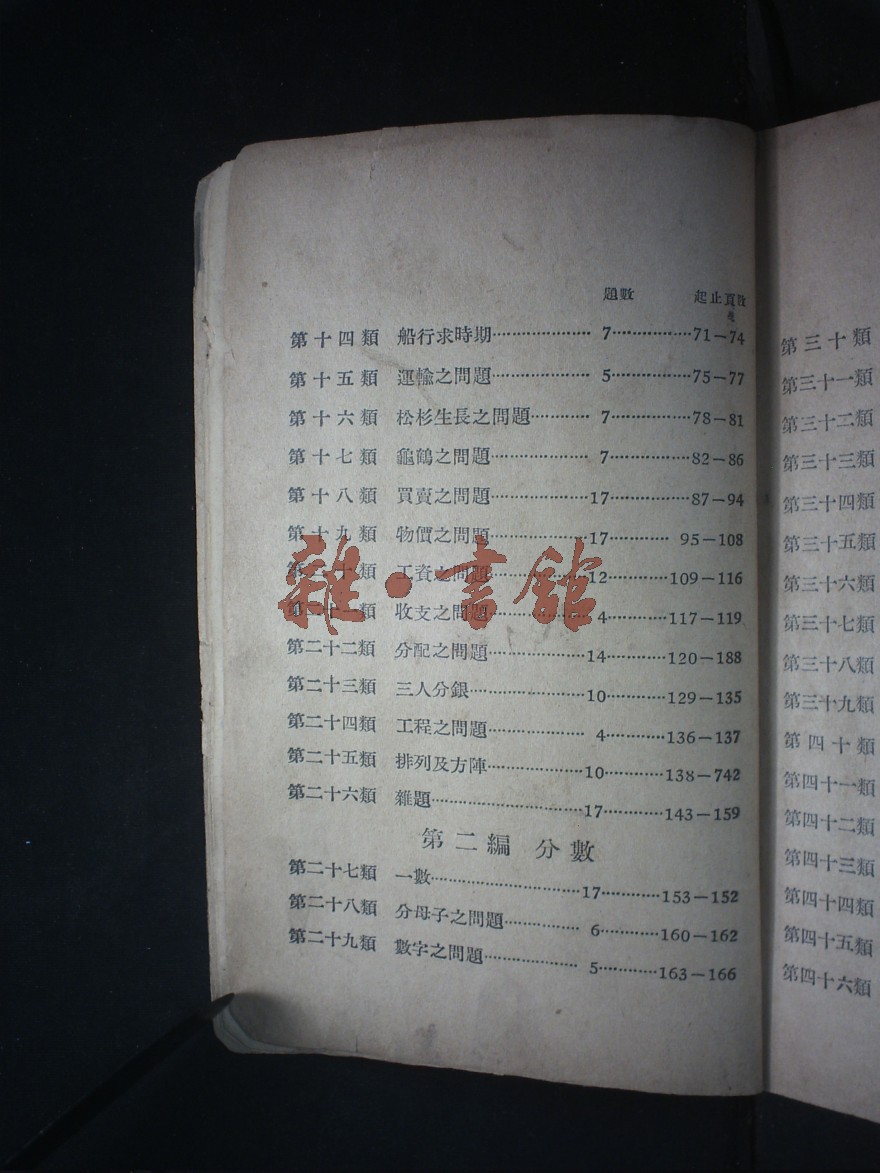 題數 起止頁數
第十四類 船行求時期 7 71－74
第十五類 運輸之問題 5 75－77
第十六類 松杉生長之問題 7 78－81
第十七類 龜鶴之問題 7 82－86
第十八類 買賣之問題 17 87－94
第十九類 物價之問題 17 95－108
第二十類 工資之問題 12 109－116
第二十一類 收支之問題 4 117－119
第二十二類 分配之問題 14 120－188
第二十三類 三人分銀 10 129－135
第二十四類 工程之問題 4 136－137
第二十五類 排列及方陣 10 138－742
第二十六類 雜題 17 143－159
第二編 分數
第二十七類 一數 17 153－152
第二十八類 分母子之問題 6 160－162
第二十九類 數字之問題 5 163－166
雜·書館
第三十類
第三十一類
第三十二類
第三十三類
第三十四類
第三十五類
第三十六類
第三十七類
第三十八類
第三十九類
第四十類
第四十一類
第四十二類
第四十三類
第四十四類
第四十五類
第四十六類